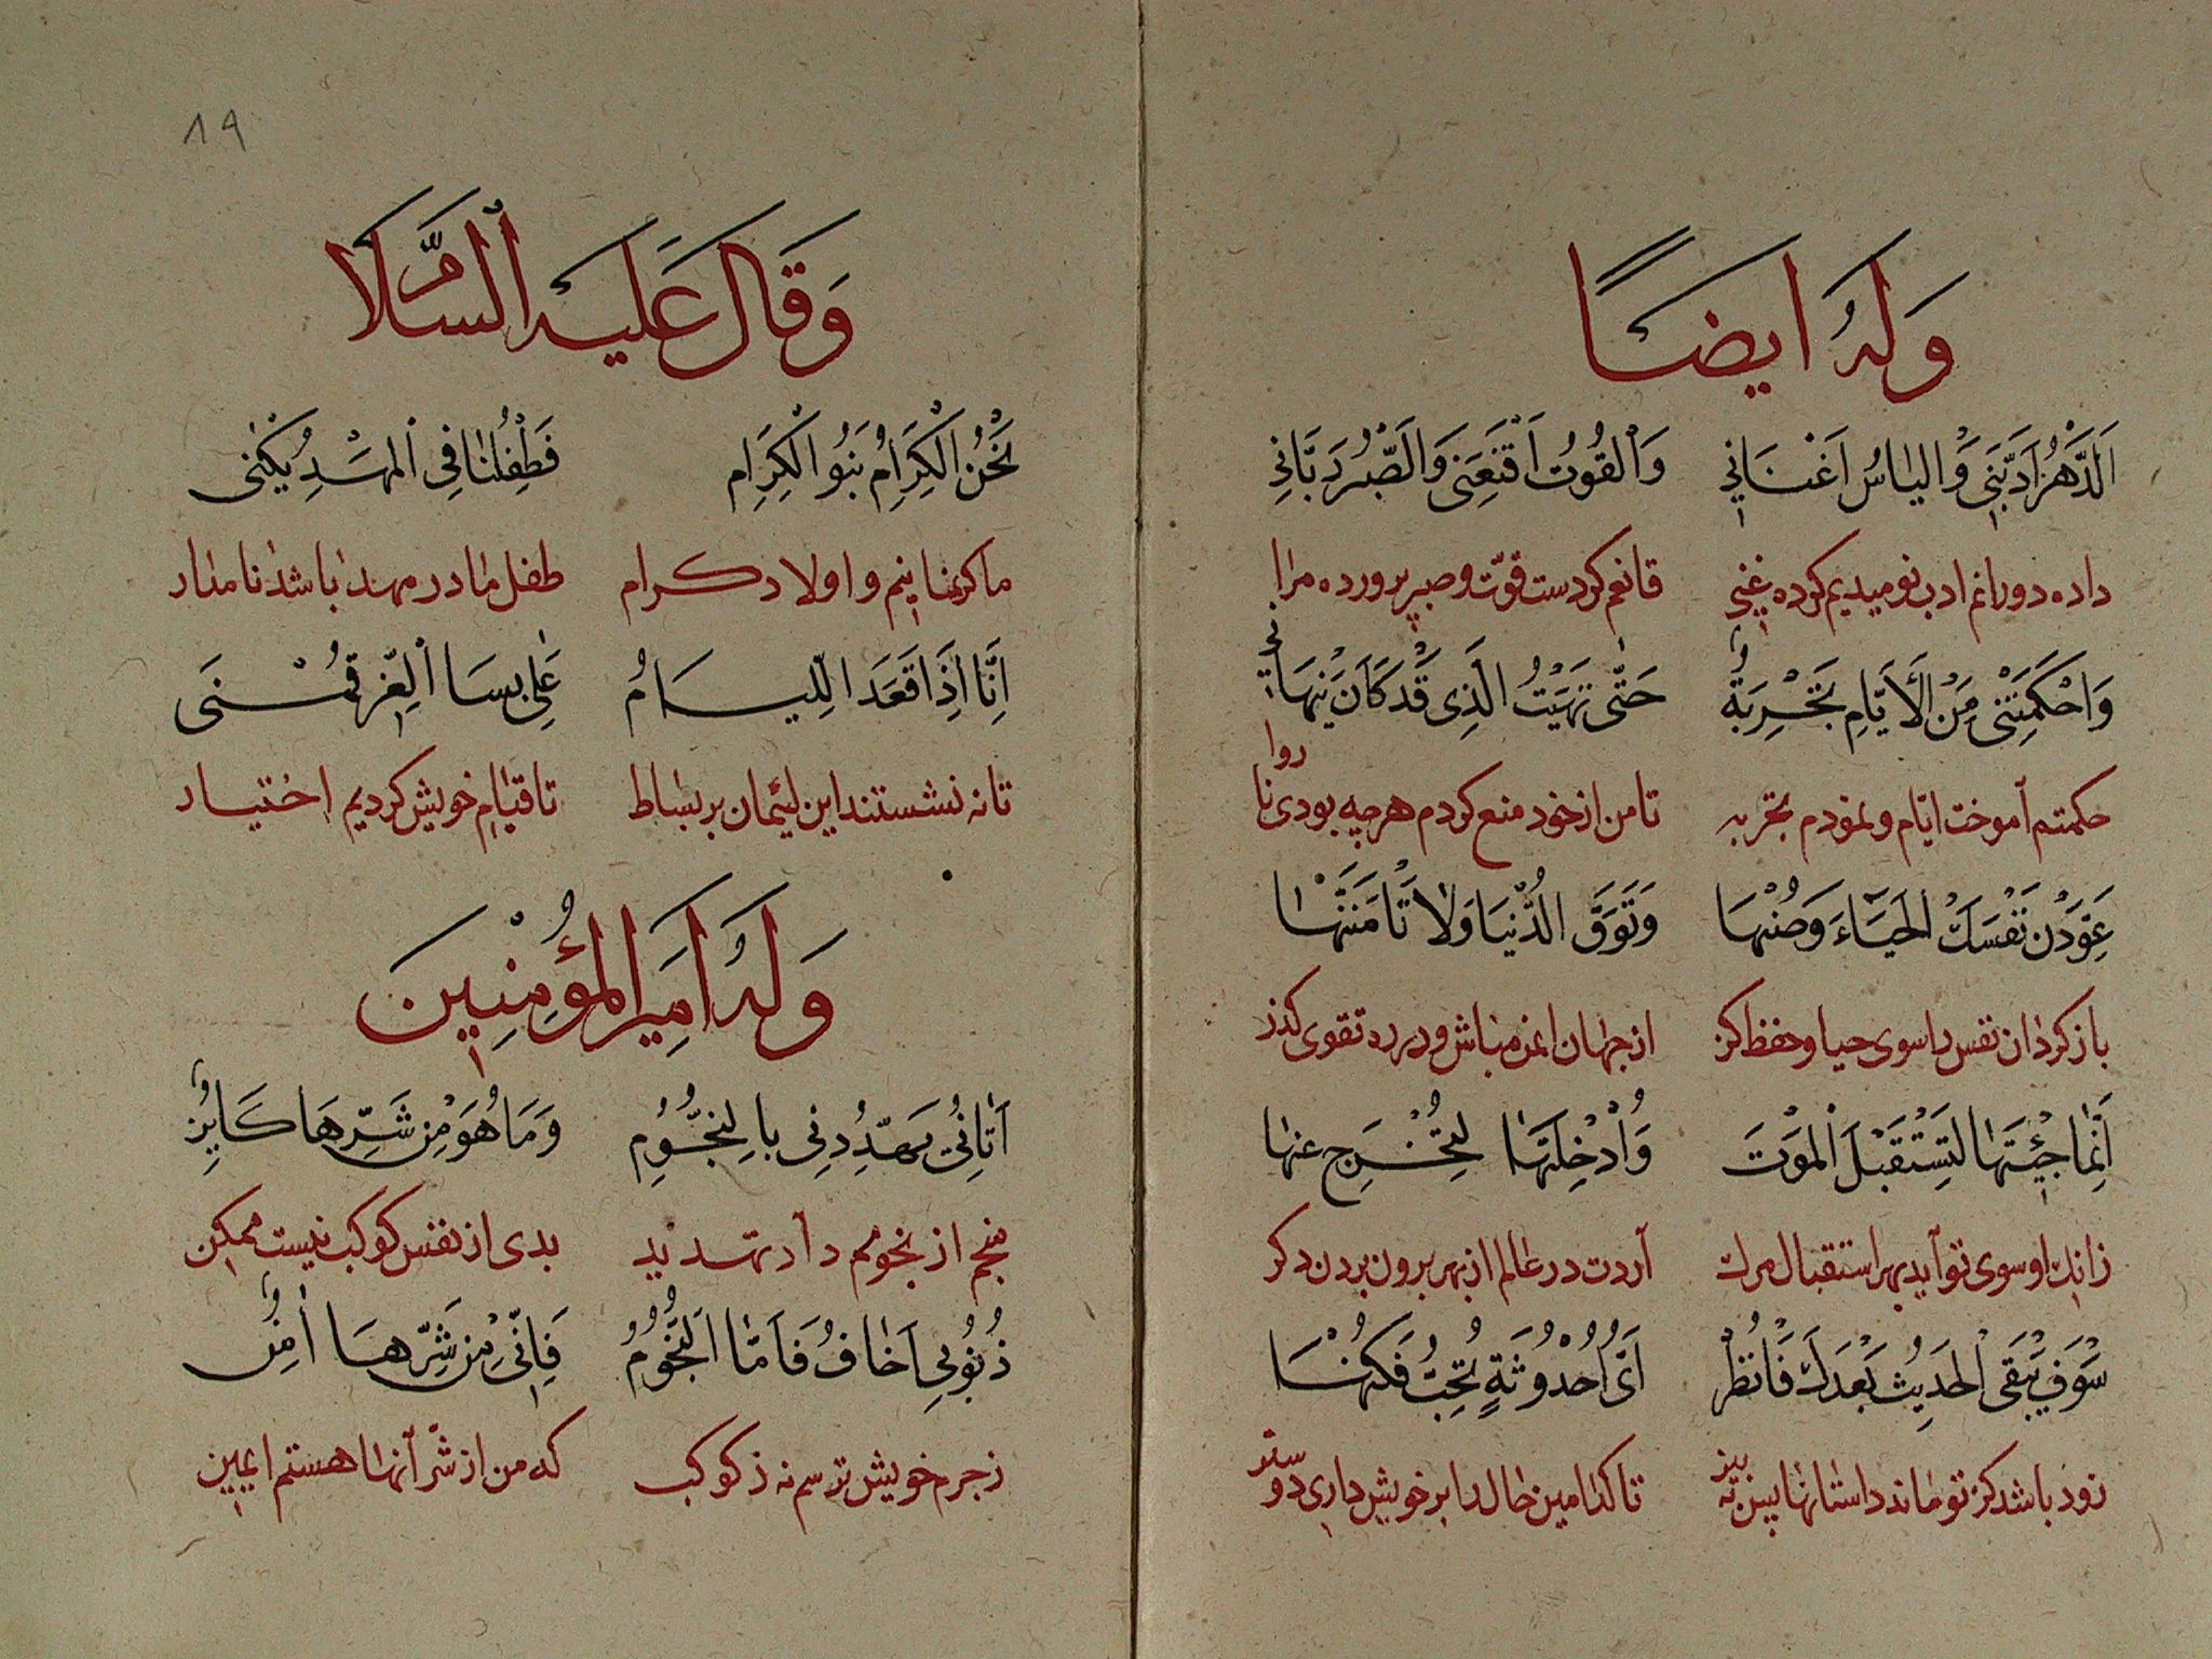 وَلَهُ ايضًا
اَلدَّهْرُ اَدَّبَنِی وَالیاسُ اَغْنَانِی وَالْقُوتُ اَقْنَعَنِی وَالصَّبْرُ رَبَّانِی
داده دورانم ادب نومیدیم کرده غنی قانعم کردست قوّت و صبر پرورده مرا
وَاَحْکَمَتْنِی مِنَ الْاَیَّامِ تَجْرِبَةٌ حَتّٰی نَهَیْتُ الَّذِی قَدْ کَانَ یَنْهَانِی
حکمتم آموخت ایّام و نمودم تجربه تا من از خود منع کردم هرچه بودی ناروا
عَوِّدَنْ نَفْسَكَ الْحَیَاءَ وَصُنْهَا وَتَوَقَّ الدُّنْیَا وَلَا تَاْمَنَنْهَا
باز کردان نفس را سوی حیا و حفظ کن از جهان ایمن مباش و در ره تقوی کذر
اِنَّمَا جِئْتَهَا لِتَسْتَقْبِلَ الْمَوْتَ وَاُدْخِلْتَهَا لِتَخْرُجَ عنها
زانك او سوی تو آید بهر استقبال مرك آردت در عالم از بهر برون بردن دکر
سَوْفَ یَبْقَی الْحَدِیثُ بَعْدَكَ فَانْظُرْ اَیَّ اُحْدُوثَةٍ تُحِبُّ فَکُنْهَا
زود باشد کز تو ماند داستانها پس به بین تا کدامین حال را بر خویش داری دوستر
١٩
وَقَالَ عَلَیهِ السَّلَام
نَحْنُ الْکِرَامُ بَنُو الْکِرَامِ فَطِفْلُنَا فِی الْمَهْدِ یُکْنٰی
ما کریمانیم و اولاد کرام طفل ما در مهد باشد نامدار
اِنَّا اِذَا قَعَدَ اللِّیَامُ عَلٰی بِسَا الْعِزِّ قُمْنَی
تا نه نشستند این لئیمان بر بساط تا قیام خویش کردیم اختیار
وَلَهُ اَمِیرَ الْمُؤْمِنِینَ
اَتَانِی یُهَدِّدُنِی بِالنُّجُومِ وَمَا هُوَ مِنْ شَرِّهَا کَایِنٌ
منجم از نجومم داد تهدید بدی از نفس کوکب نیست ممکن
ذُنُوبِی اَخَافُ فَاَمَّا النُّجُومُ فَاِنِّی مِنْ شَرِّهَا اٰمِنٌ
ز جرم خویش ترسم نه ز کوکب که من از شرّ آنها هستم ایمن